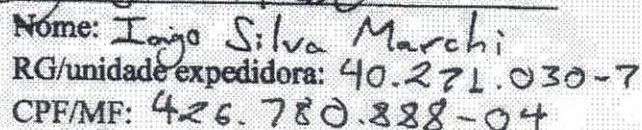 Nome: Iago Silva Marchi
RG/unidade expedidora: 40.271.030-7
CPF/MF: 426.780.888-04